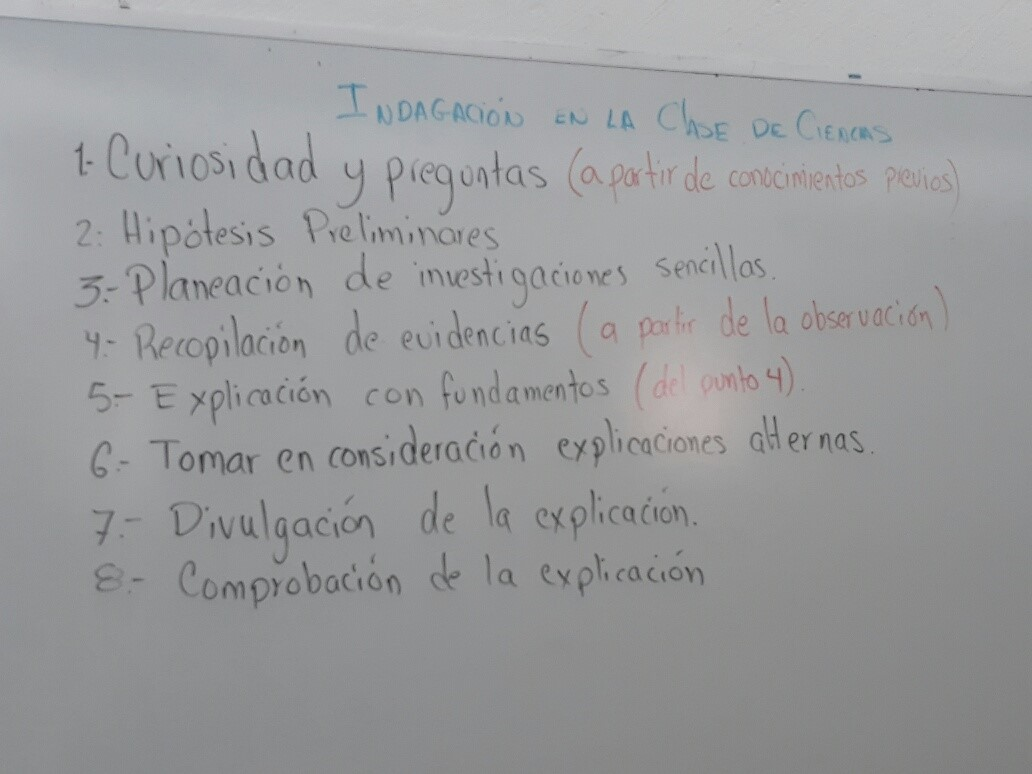 INDAGACIÓN EN LA CLASE DE CIENCIAS
1.- Curiosidad y preguntas (a partir de conocimientos previos)
2.- Hipótesis Preliminares
3.- Planeación de investigaciones sencillas.
4.- Recopilación de evidencias (a partir de la observación)
5.- Explicación con fundamentos (del punto 4).
6.- Tomar en consideración explicaciones alternas.
7.- Divulgación de la explicación.
8.- Comprobación de la explicación